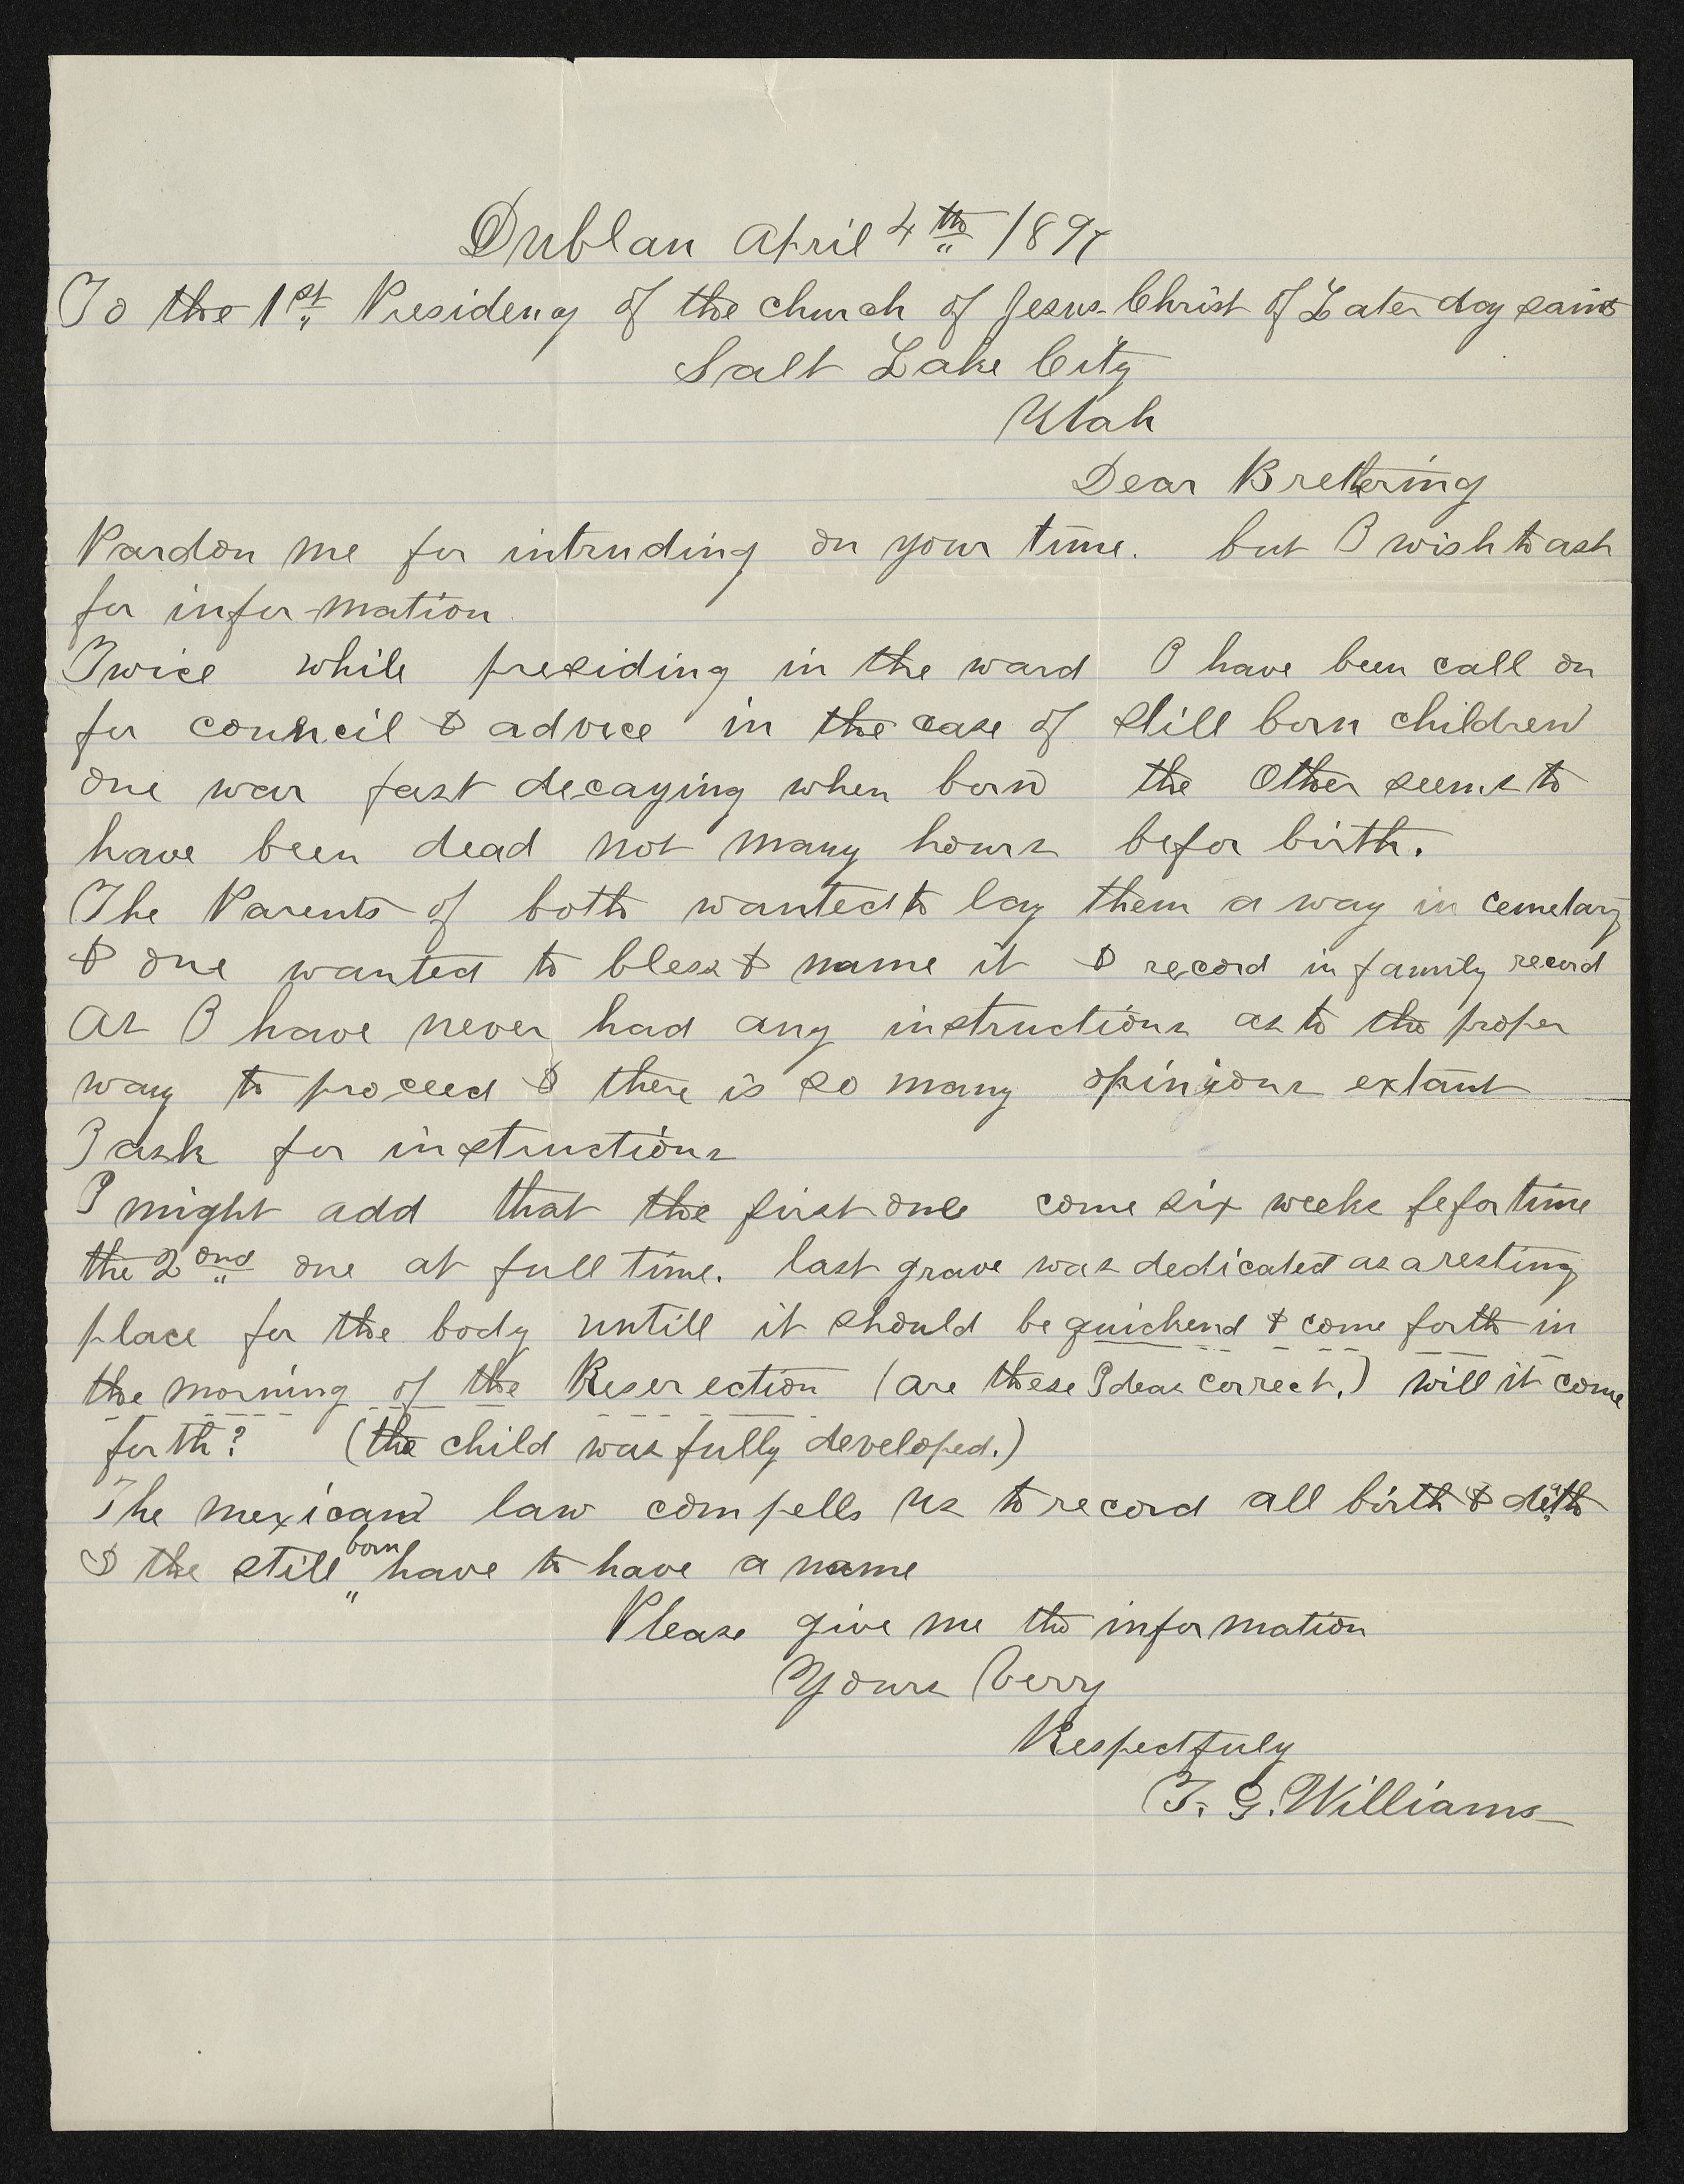 Dublan April 4th 1897
To the 1st Presidency of the church of Jesus Christ of Later day saints
Salt Lake City
Utah
Dear Brethering
Pardon me for intruding on your time. but I wish to ask
for information
Twice while presiding in the ward I have been call on
for council & advice in the case of still born children
one was fast decaying when born the Other seems to
have been dead not many hours befor birth.
The Parents of both wanted to lay them a way in cemetary
& one wanted to bless & name it & record in family record
As I have never had any instructions as to the proper
way to proceed & there is so many opinions extant
I ask for instructions
I might add that the first one come six weeks fefor time
the 2ond one at full time. last grave was dedicated as a resting
place for the body untill it should be quickend & come forth in
the morning of the Reserection (are these Ideas correct.) will it come
forth? (the child was fully developed.)
The mexican law compells us to record all birth & deth
& the still born have to have a name
Please give me the information
Yours Verry
Respectfuly
T. G. Williams